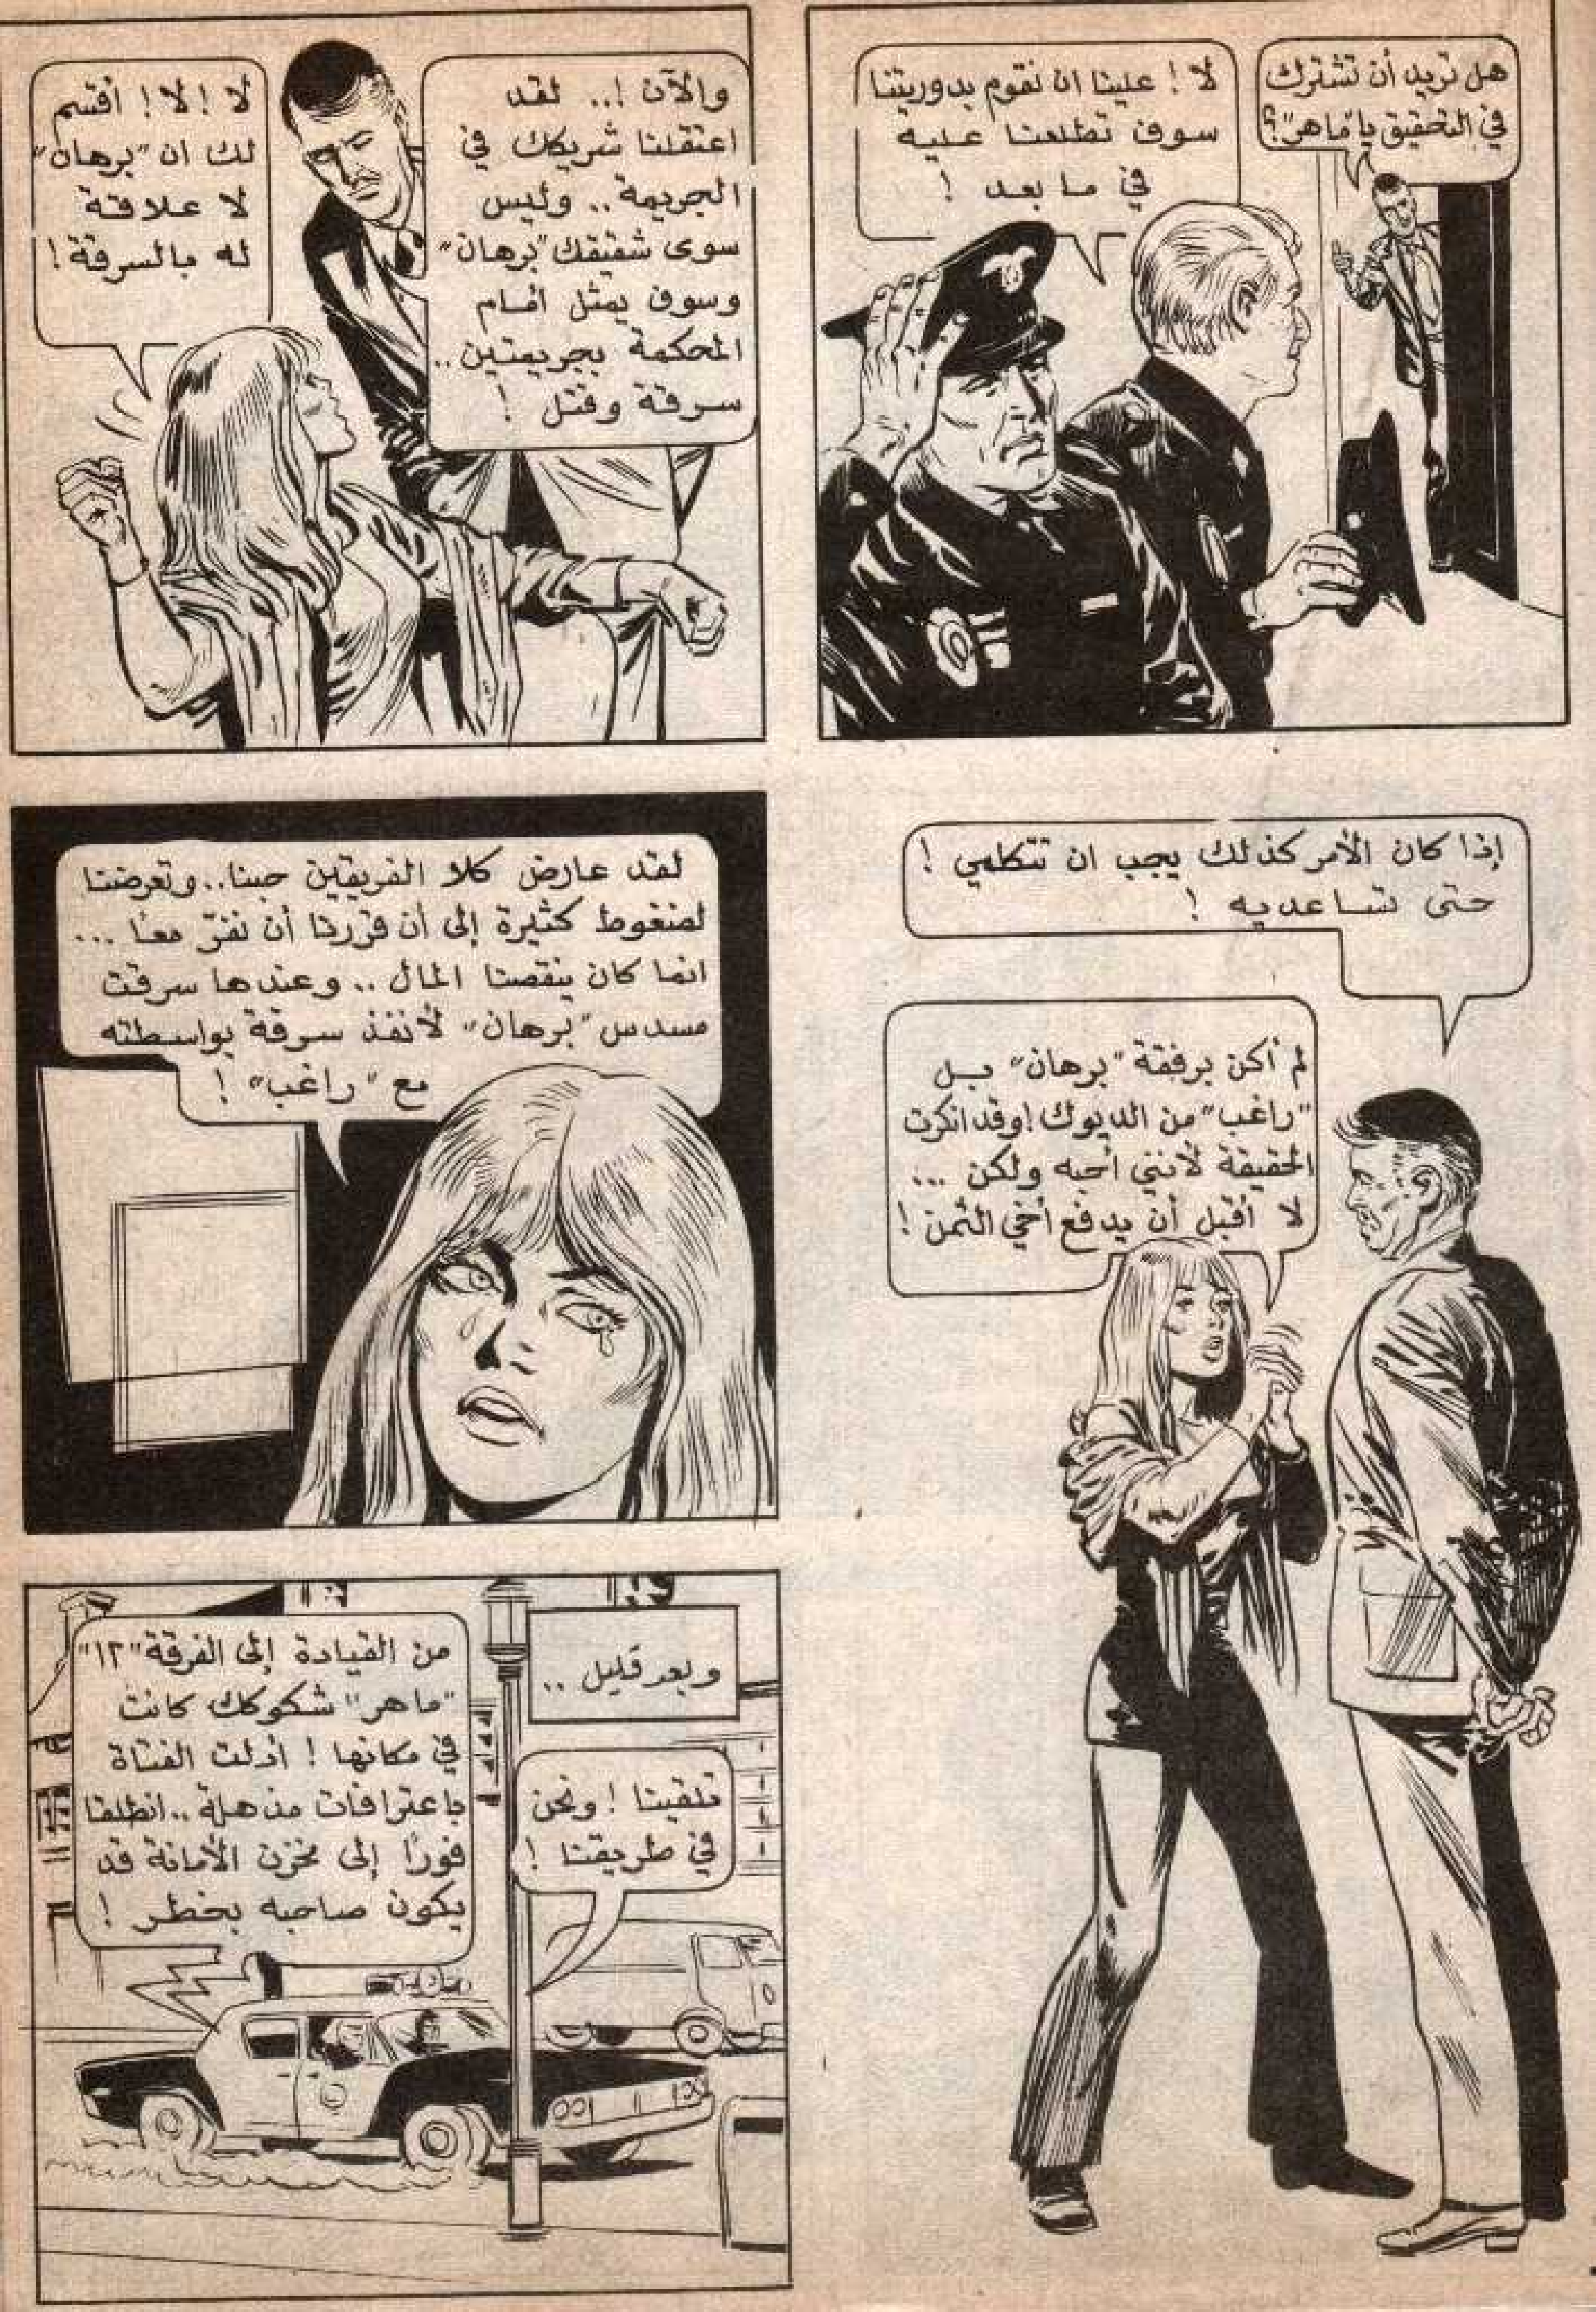 هل تريد أن تشترك
في التحقيق يا "ماهر"؟
لا ! علينا ان نقوم بدوريتنا
سوف تطلعنا عليه
في ما بعد !
والآن !.. لقد
اعتقلنا شريكك في
الجريمة.. وليس
سوى شقيقك "برهان"
وسوف يمثل امام
المحكمة بجريمتين..
سرقة وقتل !
لا ! لا ! أقسم
لك ان "برهان"
لا علاقة
له بالسرقة !
إذا كان الأمر كذلك يجب ان تتكلمي !
حتى تساعديه !
لم أكن برفقة "برهان" بل
"راغب" من الديوك ! وقد انكرت
الحقيقة لأنني أحبه ولكن ...
لا أقبل أن يدفع أخي الثمن !
لقد عارض كلا الفريقين حبنا.. وتعرضنا
لضغوط كثيرة إلى أن قررنا أن نفرّ معًا ...
انما كان ينقصنا المال .. وعندها سرقت
مسدس "برهان" لأنفذ سرقة بواسطته
مع "راغب" !
وبعد قليل ..
من القيادة إلى الفرقة "١٢"
"ماهر" شكوكك كانت
في مكانها ! أدلت الفتاة
باعترافات مذهلة .. انطلقا
فورًا إلى مخزن الأمانة قد
يكون صاحبه بخطر !
تلقينا ! ونحن
في طريقنا !